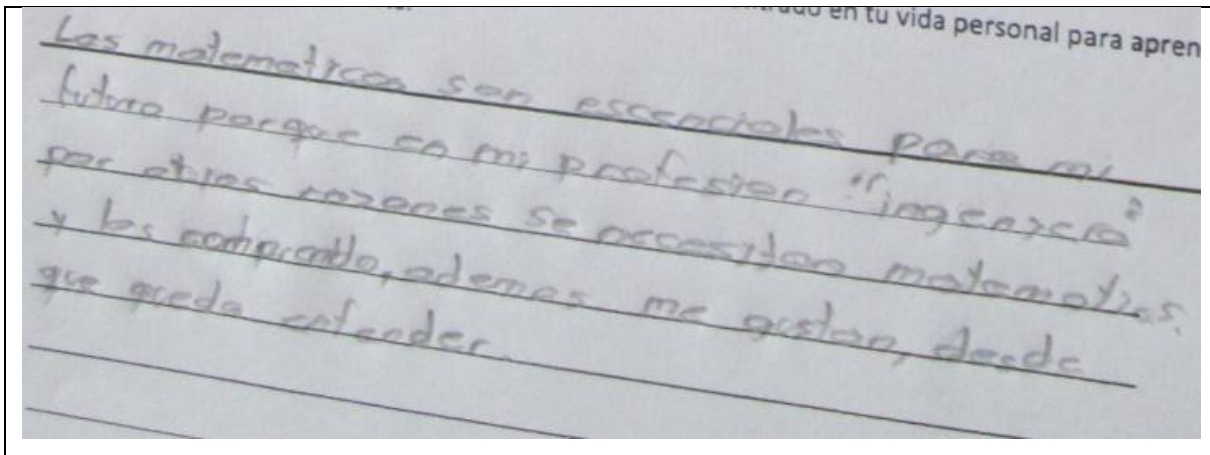 en tu vida personal para apren
Las matematicas son escenciales para mi
futuro porque en mi profesion "ingeniero"
por otras razones se necesitan matematicas.
y las comprendo, ademas me gustan, desde
que pueda entender.